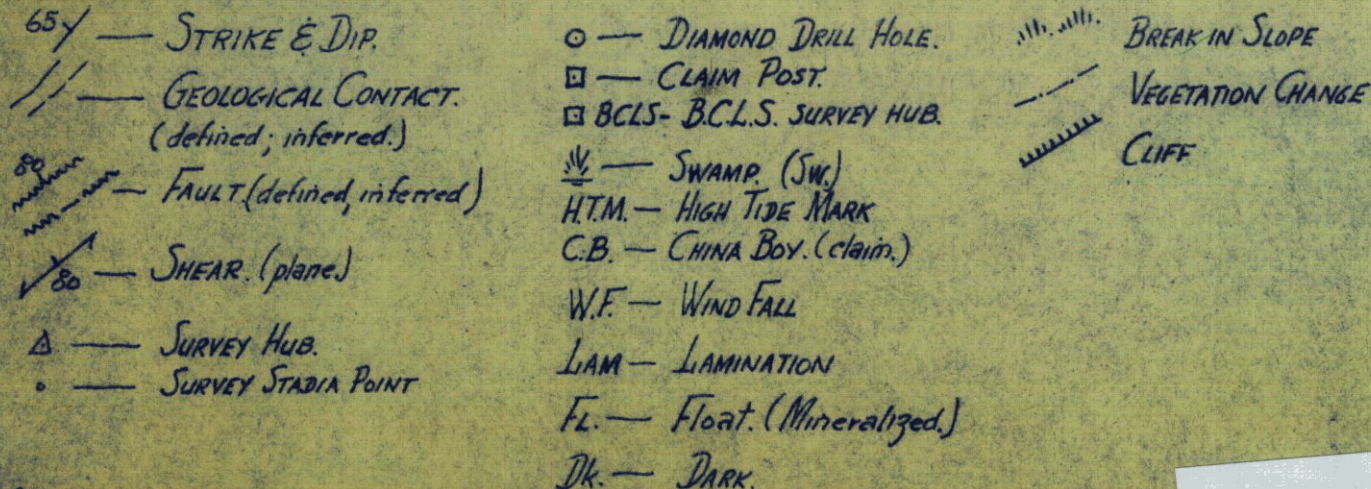 65 — STRIKE & DIP.
— GEOLOGICAL CONTACT.
(defined; inferred.)
80 — FAULT. (defined, inferred)
80 — SHEAR. (plane.)
— SURVEY HUB.
— SURVEY STADIA POINT
— DIAMOND DRILL HOLE.
— CLAIM POST.
BCLS - B.C.L.S. SURVEY HUB.
— SWAMP. (SW.)
H.T.M. — HIGH TIDE MARK
C.B. — CHINA BOY. (claim.)
W.F. — WIND FALL
LAM — LAMINATION
FL. — Float. (Mineralized.)
DK. — DARK.
BREAK IN SLOPE
VEGETATION CHANGE
CLIFF